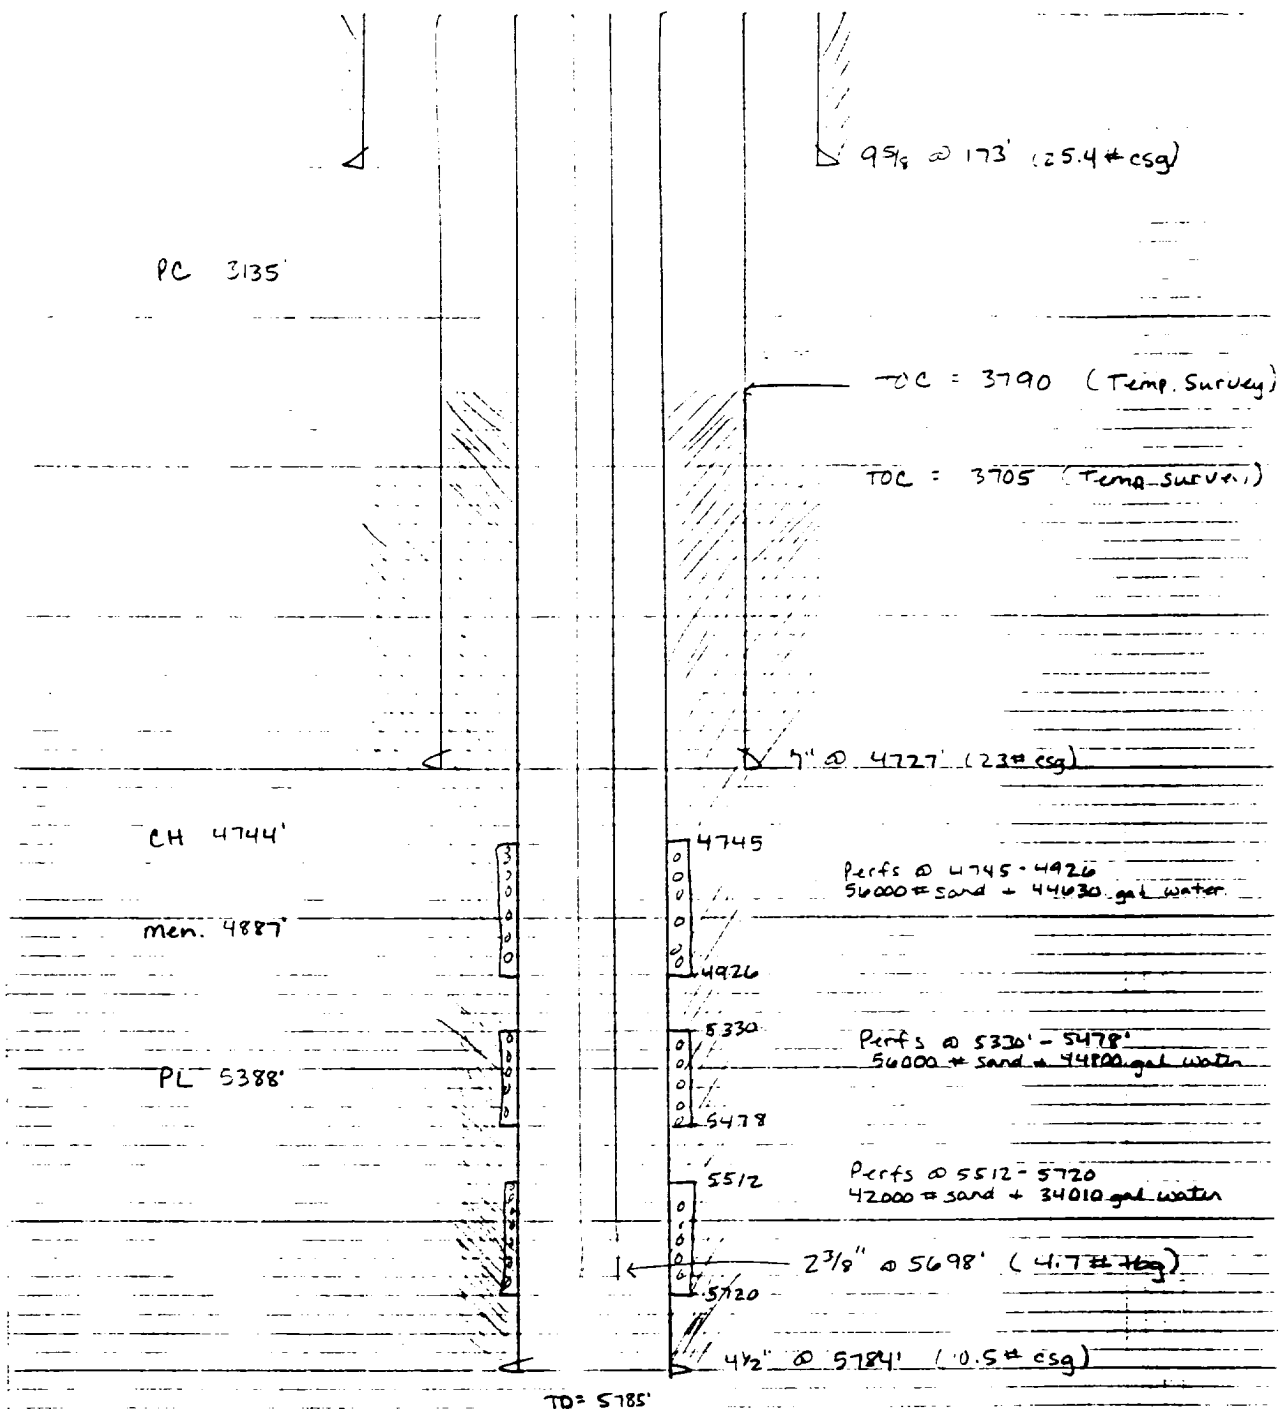 9 5/8 @ 173' (25.4 # csg)
PC 3135'
TOC = 3790 (Temp. Survey)
TOC = 3705 (Temp Survey)
7" @ 4727' (23# csg)
CH 4744'
4745
Perfs @ 4745-4926
56000 # sand + 44630 gal water
Men. 4887'
4926
5330
Perfs @ 5330' - 5478'
56000 # sand + 44800 gal water
PL 5388'
5478
5512
Perfs @ 5512 - 5720
42000 # sand + 34010 gal water
2 3/8" @ 5698' (4.7 # tbg)
5720
4 1/2" @ 5784' (10.5 # csg)
TD = 5785'